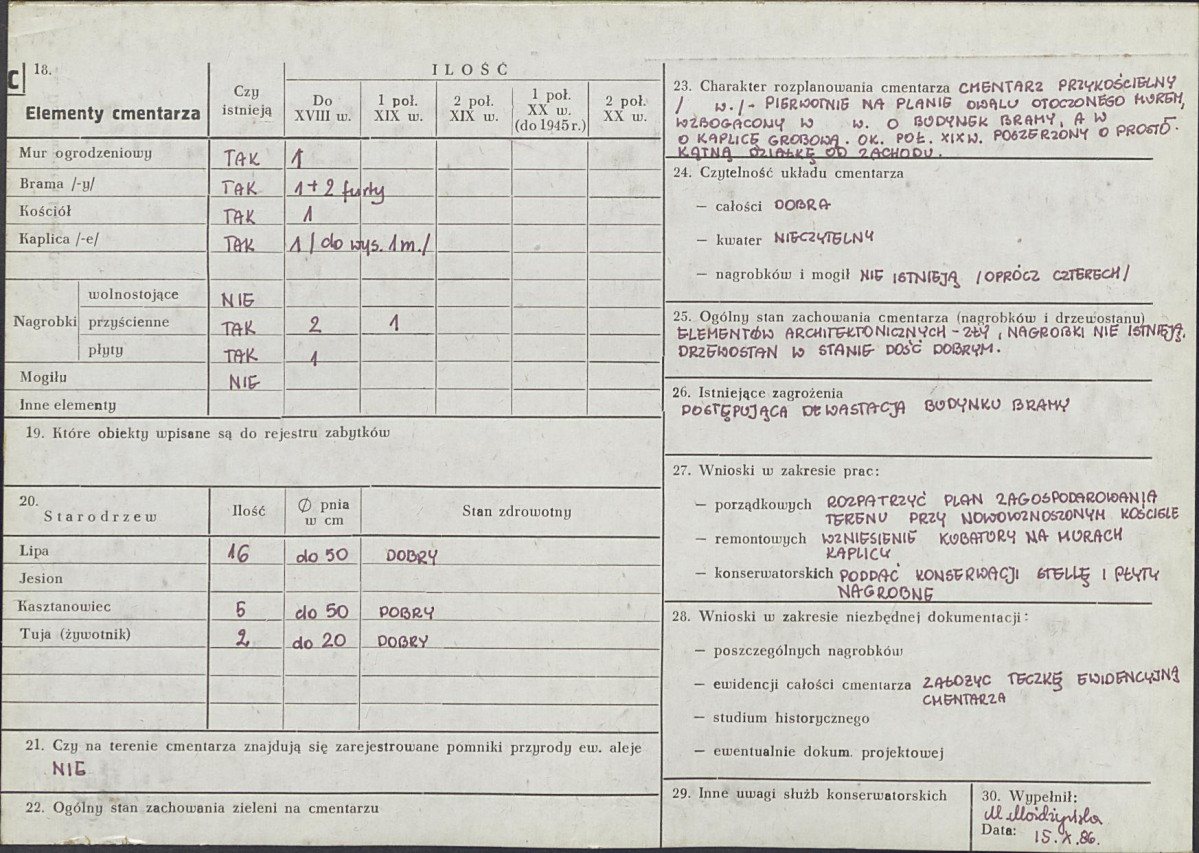 C
18.
Elementy cmentarza
Czy istnieją
ILOŚĆ
Do XVIII w.
1 poł. XIX w.
2 poł. XIX w.
1 poł. XX w. (do 1945 r.)
2 poł. XX w.
Mur ogrodzeniowy TAK 1
Brama /-y/ TAK 1 + 2 furty
Kościół TAK 1
Kaplica /-e/ TAK 1 / do wys. 1 m./
Nagrobki
wolnostojące NIE
przyścienne TAK 2 1
płyty TAK 1
Mogiły NIE
Inne elementy
19. Które obiekty wpisane są do rejestru zabytków
20. Starodrzew
Ilość
Ø pnia w cm
Stan zdrowotny
Lipa 16 do 50 DOBRY
Jesion
Kasztanowiec 5 do 50 DOBRY
Tuja (żywotnik) 2 do 20 DOBRY
21. Czy na terenie cmentarza znajdują się zarejestrowane pomniki przyrody ew. aleje
NIE
22. Ogólny stan zachowania zieleni na cmentarzu
23. Charakter rozplanowania cmentarza CMENTARZ PRZYKOŚCIELNY
/ W./ - PIERWOTNIE NA PLANIE OWALU OTOCZONEGO MUREM,
WZBOGACONY W W. O BUDYNEK BRAMY, A W
O KAPLICĘ GROBOWĄ. OK. POŁ. XIX W. POSZERZONY O PROSTO-
KĄTNĄ DZIAŁKĘ OD ZACHODU.
24. Czytelność układu cmentarza
— całości DOBRA
— kwater NIECZYTELNY
— nagrobków i mogił NIE ISTNIEJĄ /OPRÓCZ CZTERECH/
25. Ogólny stan zachowania cmentarza (nagrobków i drzewostanu)
ELEMENTÓW ARCHITEKTONICZNYCH - ZŁY, NAGROBKI NIE ISTNIEJĄ,
DRZEWOSTAN W STANIE DOŚĆ DOBRYM.
26. Istniejące zagrożenia
POSTĘPUJĄCA DEWASTACJA BUDYNKU BRAMY
27. Wnioski w zakresie prac:
— porządkowych ROZPATRZYĆ PLAN ZAGOSPODAROWANIA
TERENU PRZY NOWOWZNOSZONYM KOŚCIELE
— remontowych WZNIESIENIE KUBATURY NA MURACH
KAPLICY
— konserwatorskich PODDAĆ KONSERWACJI STELLĘ I PŁYTY
NAGROBNE
28. Wnioski w zakresie niezbędnej dokumentacji:
— poszczególnych nagrobków
— ewidencji całości cmentarza ZAŁOŻYĆ TECZKĘ EWIDENCYJNĄ
CMENTARZA
— studium historycznego
— ewentualnie dokum. projektowej
29. Inne uwagi służb konserwatorskich
30. Wypełnił:
Data: 15.X.86.